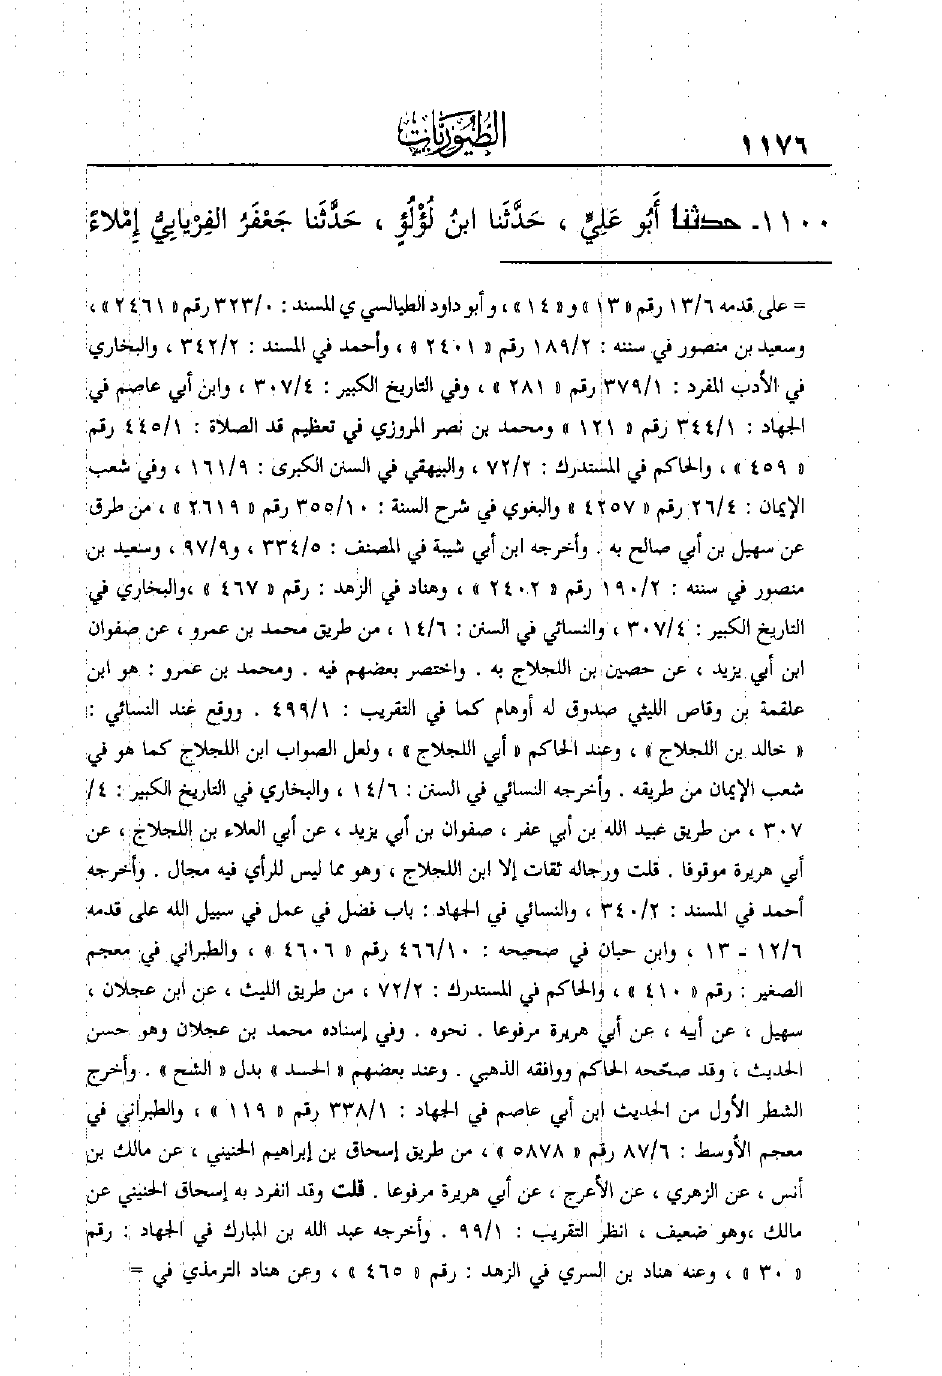 ١١٧٦
الطيوريات
١١٠٠ـ حدثنا أَبُو عَلِيٍّ ، حَدَّثَنا ابنُ لُؤْلُؤٍ ، حَدَّثَنا جَعْفَرُ الفِرْيابِيُّ إِمْلاءً
= على قدمه ١٣/٦ رقم « ١٣ » و « ١٤ » ، وأبو داود الطيالسي ي المسند : ٣٢٣/٠ رقم « ٢٤٦١ » ،
وسعيد بن منصور في سننه : ١٨٩/٢ رقم « ٢٤٠١ » ، وأحمد في المسند : ٣٤٢/٢ ، والبخاري
في الأدب المفرد : ٣٧٩/١ رقم « ٢٨١ » ، وفي التاريخ الكبير : ٣٠٧/٤ ، وابن أبي عاصم في
الجهاد : ٣٤٤/١ رقم « ١٢١ » ومحمد بن نصر المروزي في تعظيم قد الصلاة : ٤٤٥/١ رقم
« ٤٥٩ » ، والحاكم في المستدرك : ٧٢/٢ ، والبيهقي في السنن الكبرى : ١٦١/٩ ، وفي شعب
الإيمان : ٢٦/٤ رقم « ٤٢٥٧ » والبغوي في شرح السنة : ٣٥٥/١٠ رقم « ٢٦١٩ » ، من طرق
عن سهيل بن أبي صالح به . وأخرجه ابن أبي شيبة في المصنف : ٣٣٤/٥ ، و٩٧/٩ ، وسعيد بن
منصور في سننه : ١٩٠/٢ رقم « ٢٤٠٢ » ، وهناد في الزهد : رقم « ٤٦٧ » ،والبخاري في
التاريخ الكبير : ٣٠٧/٤ ، والنسائي في السنن : ١٤/٦ ، من طريق محمد بن عمرو ، عن صفوان
ابن أبي يزيد ، عن حصين بن اللجلاج به . واختصر بعضهم فيه . ومحمد بن عمرو : هو ابن
علقمة بن وقاص الليثي صدوق له أوهام كما في التقريب : ٤٩٩/١ . ووقع عند النسائي :
« خالد بن اللجلاج » ، وعند الحاكم « أبي اللجلاج » ، ولعل الصواب ابن اللجلاج كما هو في
شعب الإيمان من طريقه . وأخرجه النسائي في السنن : ١٤/٦ ، والبخاري في التاريخ الكبير : ٤/
٣٠٧ ، من طريق عبيد الله بن أبي عفر ، صفوان بن أبي يزيد ، عن أبي العلاء بن اللجلاج ، عن
أبي هريرة موقوفا . قلت ورجاله ثقات إلا ابن اللجلاج ، وهو مما ليس للرأي فيه مجال . وأخرجه
أحمد في المسند : ٣٤٠/٢ ، والنسائي في الجهاد : باب فضل في عمل في سبيل الله على قدمه
١٢/٦ - ١٣ ، وابن حبان في صحيحه : ٤٦٦/١٠ رقم « ٤٦٠٦ » ، والطبراني في معجم
الصغير : رقم « ٤١٠ » ، والحاكم في المستدرك : ٧٢/٢ ، من طريق الليث ، عن ابن عجلان ،
سهيل ، عن أبيه ، عن أبي هريرة مرفوعا . نحوه . وفي إسناده محمد بن عجلان وهو حسن
الحديث ، وقد صحّحه الحاكم ووافقه الذهبي . وعند بعضهم « الحسد » بدل « الشح » . وأخرج
الشطر الأول من الحديث ابن أبي عاصم في الجهاد : ٣٣٨/١ رقم « ١١٩ » ، والطبراني في
معجم الأوسط : ٨٧/٦ رقم « ٥٨٧٨ » ، من طريق إسحاق بن إبراهيم الحنيني ، عن مالك بن
أنس ، عن الزهري ، عن الأعرج ، عن أبي هريرة مرفوعا . قلت وقد انفرد به إسحاق الحنيني عن
مالك ،وهو ضعيف ، انظر التقريب : ٩٩/١ . وأخرجه عبد الله بن المبارك في الجهاد : رقم
« ٣٠ » ، وعنه هناد بن السري في الزهد : رقم « ٤٦٥ » ، وعن هناد الترمذي في =